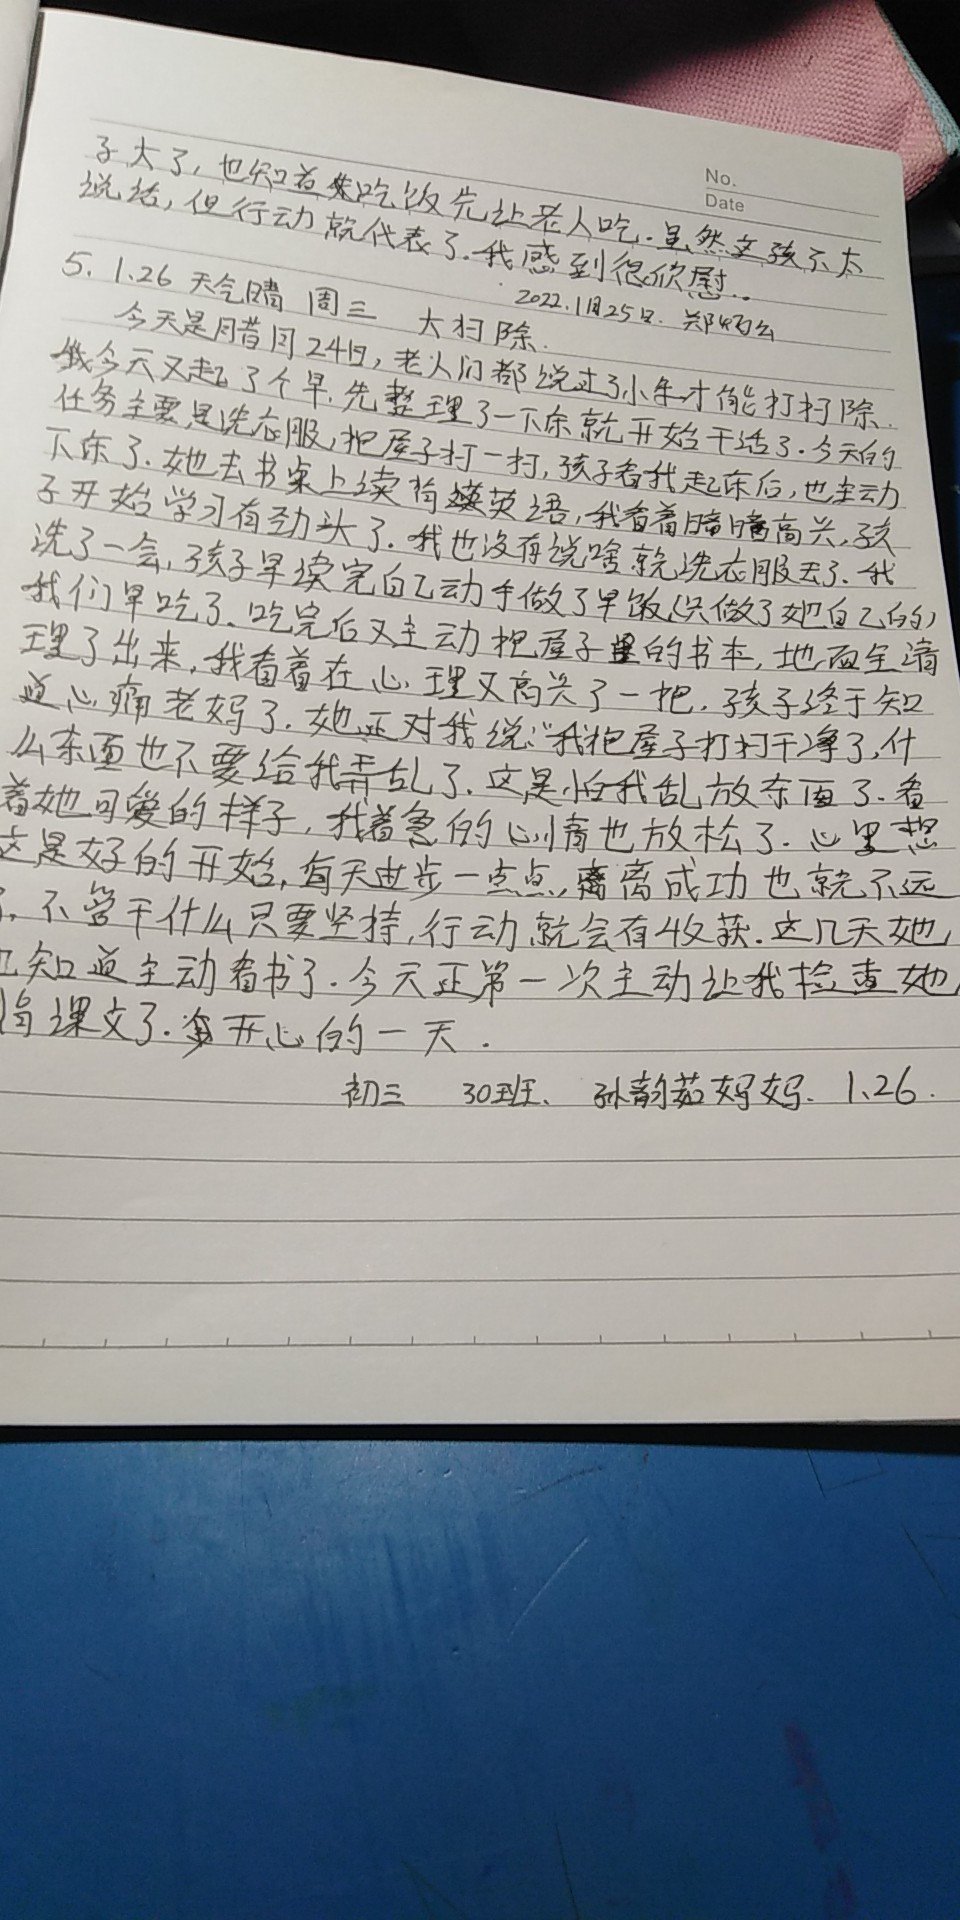 No.
Date
子大了，也知道吃饭先让老人吃.虽然这孩子不太
说话，但行动就代表了.我感到很欣慰..
2022.1月25日.郑
5. 1.26 天气晴 周三 大扫除.
今天是腊月24日，老人们都说过了小年才能打扫除.
我今天又起了个早.先整理了一下床就开始干活了.今天的
任务主要是洗衣服，把屋子打一打，孩子看我起床后，也主动
下床了.她去书桌上读背英语，我看着暗暗高兴，孩
子开始学习有劲头了.我也没有说啥就洗衣服去了.我
洗了一会，孩子早读完自己动手做了早饭(只做了她自己的)
我们早吃了.吃完后又主动把屋子里的书本，地面全清
理了出来，我看着在心理又高兴了一把，孩子终于知
道心痛老妈了.她还对我说:“我把屋子打扫干净了，什
么东西也不要给我弄乱了.这是怕我乱放东西了.看
着她可爱的样子，我着急的心情也放松了.心里想
这是好的开始，每天进步一点点，离成功也就不远
了.不管干什么只要坚持，行动就会有收获.这几天她
也知道主动看书了.今天还第一次主动让我检查她
背课文了.开心的一天.
初三 30班、 孙韵茹妈妈. 1.26.